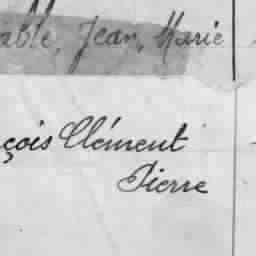 able, Jean, Marie
çois Clément
Pierre